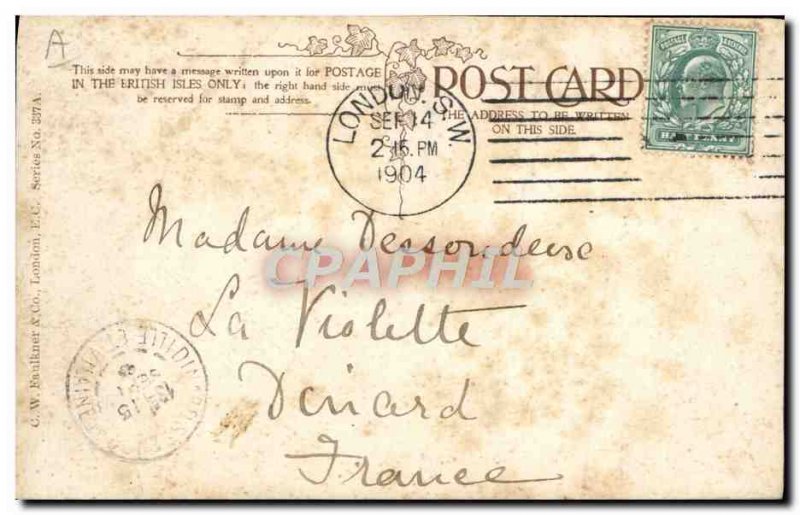 A
This side may have a message written upon it for POSTAGE
IN THE BRITISH ISLES ONLY: the right hand side must
be reserved for stamp and address.
POST CARD
THE ADDRESS TO BE WRITTEN
ON THIS SIDE.
POSTAGE
HALFPENNY
LONDON. S.W.
SEP 14
2.15.PM
1904
Madame
La Violette
Dinard
France
CPAPHIL
C. W. Faulkner & Co., London, E.C. Series No. 337A.